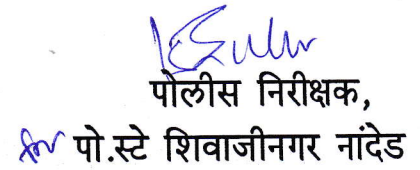 पोलीस निरीक्षक,
for पो.स्टे शिवाजीनगर नांदेड